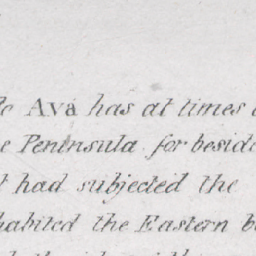 Ava has at times
Peninsula for besid
had subjected the
habited the Eastern b